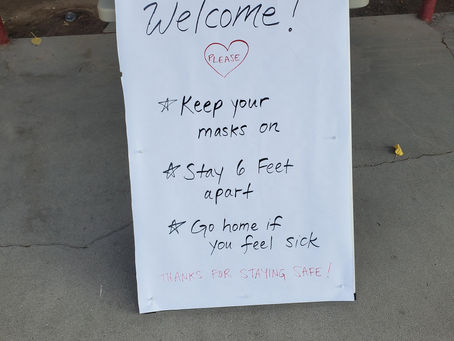 Welcome!
PLEASE
☆ Keep your
masks on
☆ Stay 6 Feet
apart
☆ Go home if
you feel sick
THANKS FOR STAYING SAFE!